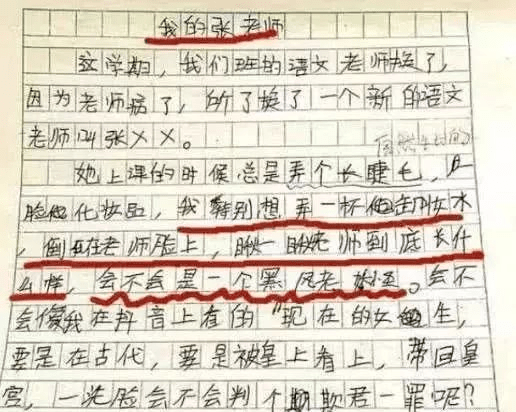 我的张老师
这学期，我们班的语文老师换了，
因为老师病了，所了换了一个新的语文
老师叫张××。
她上课的时候总是弄个长睫毛，
脸 化妆品，我特别想弄一杯 水
，倒在老师脸上，瞅一瞅老师到底长什
么样，会不会是一个黑风老妖怪。会不
会像我在抖音上看的“现在的女生，
要是在古代，要是被皇上看上，带回皇
宫，一洗脸会不会判个期欺君一罪呢？